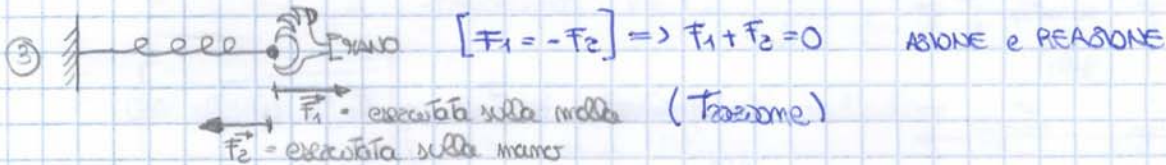 ③ MANO [F₁ = -F₂] => F₁ + F₂ = 0 AZIONE e REAZIONE
F₁ = esercitata sulla molla (Trazione)
F₂ = esercitata sulla mano